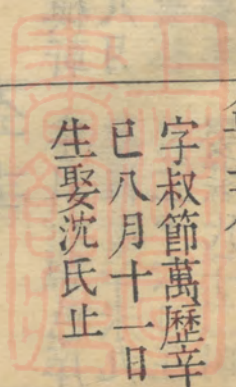 字叔節萬歷辛
巳八月十一日
生娶沈氏止